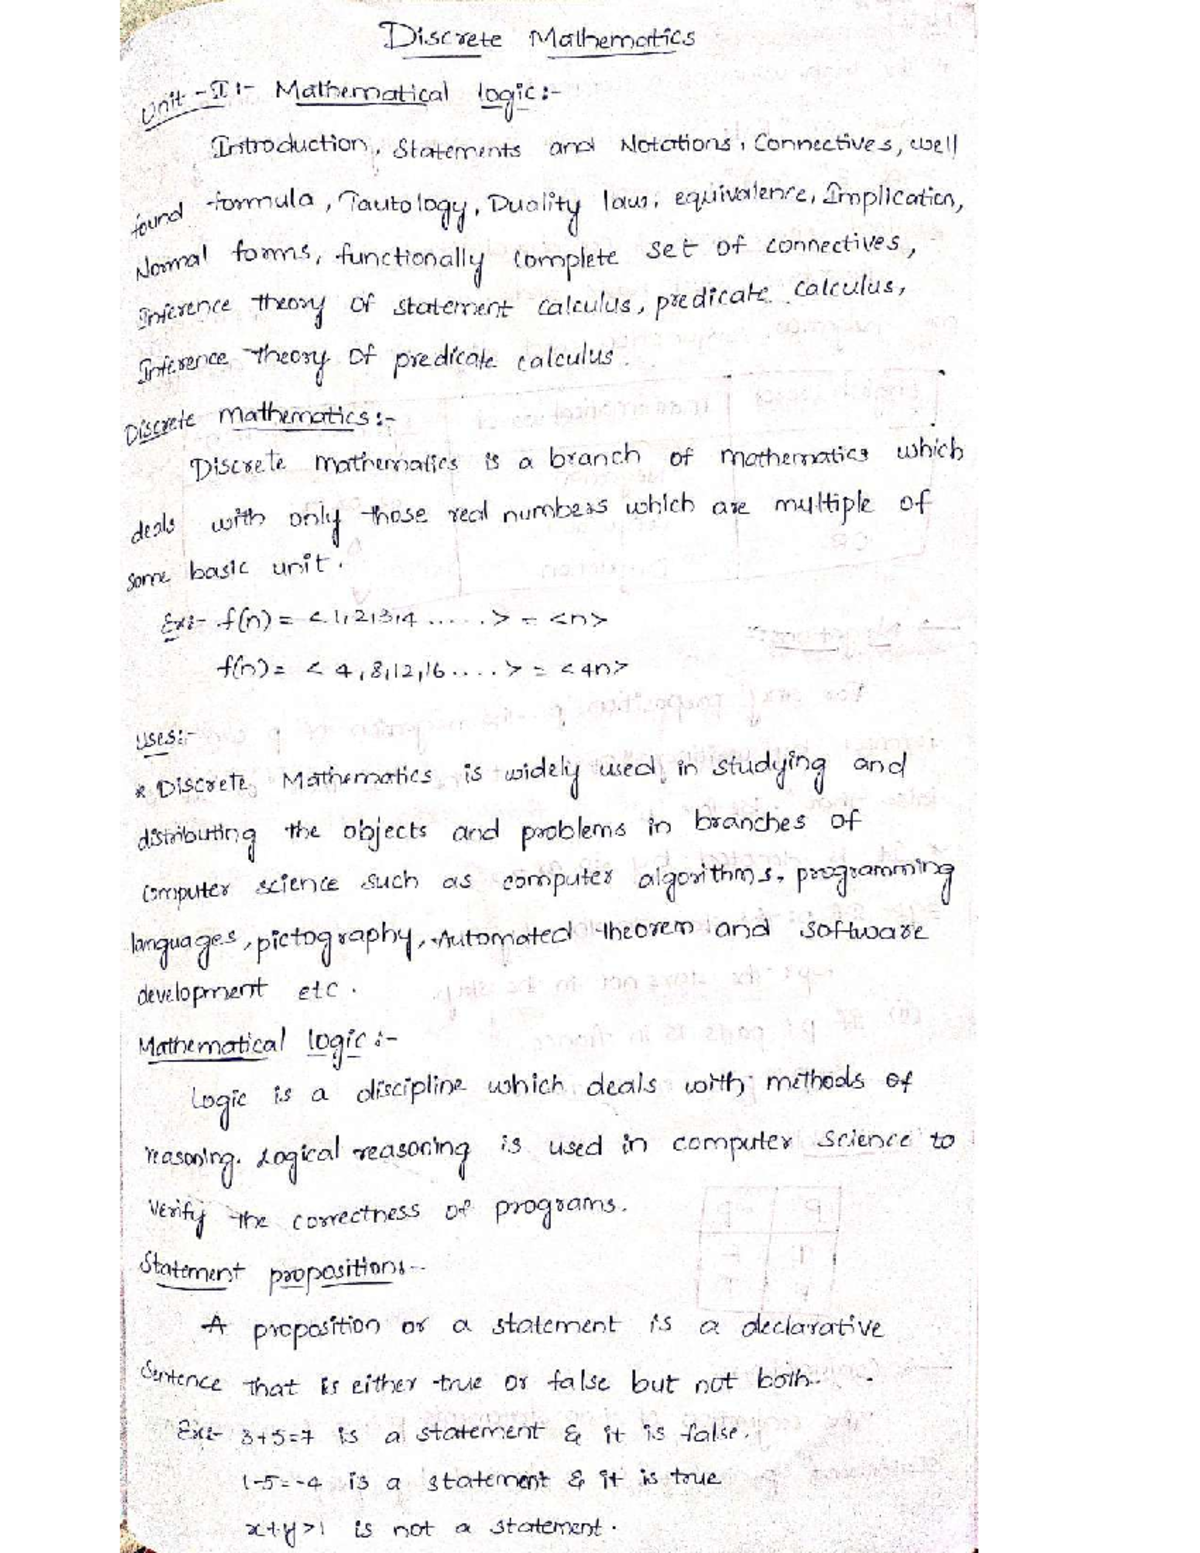 Discrete Mathematics
Unit-I:- Mathematical logic:-
Introduction, Statements and Notations, Connectives, well
found formula, Tautology, Duality law, equivalence, Implication,
Normal forms, functionally complete set of connectives,
Inference theory of statement calculus, predicate calculus,
Inference Theory of predicate calculus.
Discrete mathematics:-
Discrete mathematics is a branch of mathematics which
deals with only those real numbers which are multiple of
some basic unit.
Ex:- f(n) = <1,2,3,4 .....> = <n>
f(n) = < 4,8,12,16....> = <4n>
Uses:-
* Discrete Mathematics is widely used in studying and
distributing the objects and problems in branches of
computer science such as computer algorithms, programming
languages, pictography, Automated theorem and software
development etc.
Mathematical logic:-
Logic is a discipline which deals with methods of
reasoning. Logical reasoning is used in computer science to
Verify the correctness of programs.
Statement propositions--
A proposition or a statement is a declarative
Sentence that is either true or false but not both.
Ex:- 3+5=7 is a statement & it is false.
1-5=-4 is a statement & it is true
x+y>1 is not a statement.